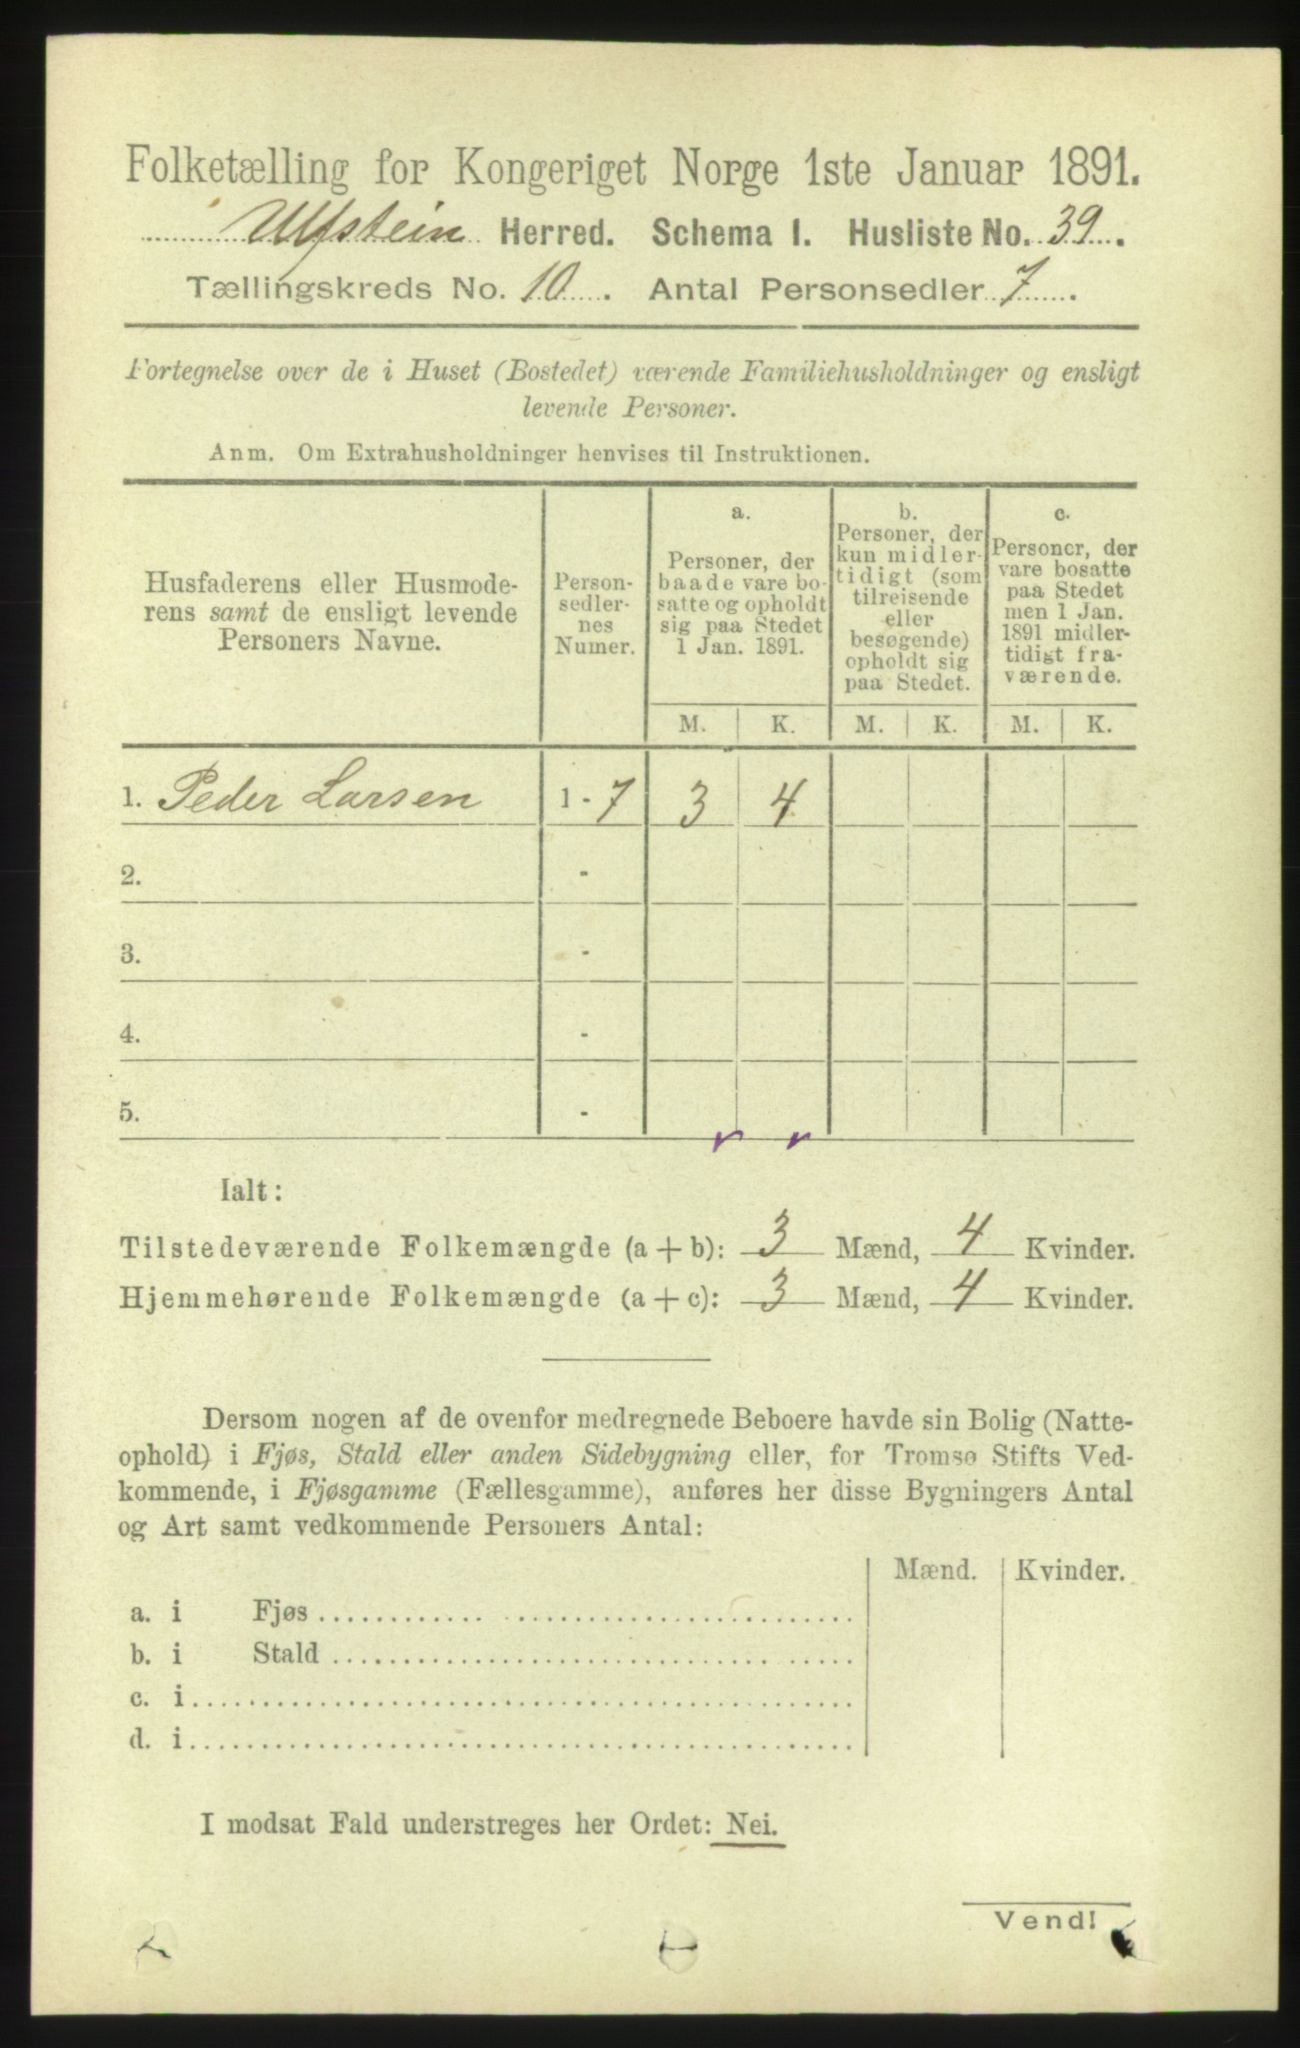 Folketælling for Kongeriget Norge 1ste Januar 1891.
Ulfstein Herred. Schema I. Husliste No. 39.
Tællingskreds No. 10. Antal Personsedler 7.
Fortegnelse over de i Huset (Bostedet) værende Familiehusholdninger og ensligt
levende Personer.
Anm. Om Extrahusholdninger henvises til Instruktionen.
Husfaderens eller Husmode-
rens samt de ensligt levende
Personers Navne.
Person-
sedler-
nes
Numer.
a.
Personer, der
baade vare bo-
satte og opholdt
sig paa Stedet
1 Jan. 1891.
b.
Personer, der
kun midler-
tidigt (som
tilreisende
eller
besøgende)
opholdt sig
paa Stedet.
c.
Personer, der
vare bosatte
paa Stedet
men 1 Jan.
1891 midler-
tidigt fra-
værende.
M. K. M. K. M. K.
1. Peder Larsen 1 - 7 3 4
2. -
3. -
4. -
5. -
Ialt:
Tilstedeværende Folkemængde (a + b): 3 Mænd, 4 Kvinder.
Hjemmehørende Folkemængde (a + c): 3 Mænd, 4 Kvinder.
Dersom nogen af de ovenfor medregnede Beboere havde sin Bolig (Natte-
ophold) i Fjøs, Stald eller anden Sidebygning eller, for Tromsø Stifts Ved-
kommende, i Fjøsgamme (Fællesgamme), anføres her disse Bygningers Antal
og Art samt vedkommende Personers Antal:
Mænd. Kvinder.
a. i Fjøs
b. i Stald
c. i
d. i
I modsat Fald understreges her Ordet: Nei.
Vend!